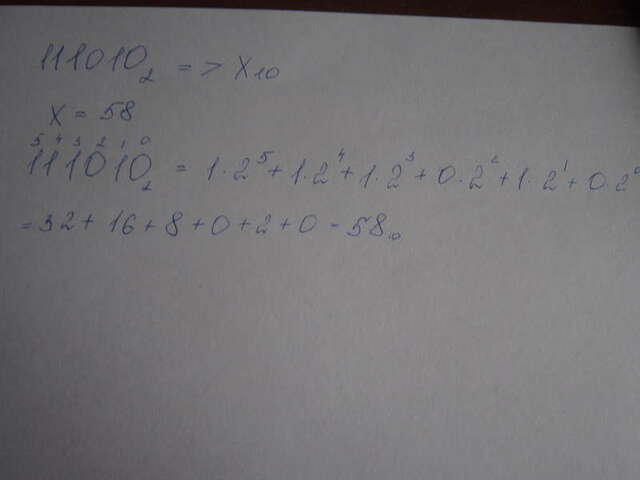 111010₂ => X₁₀
X = 58
5 4 3 2 1 0
111010₂ = 1·2⁵+1·2⁴+1·2³+0·2²+1·2¹+0·2⁰
=32+16+8+0+2+0=58₁₀